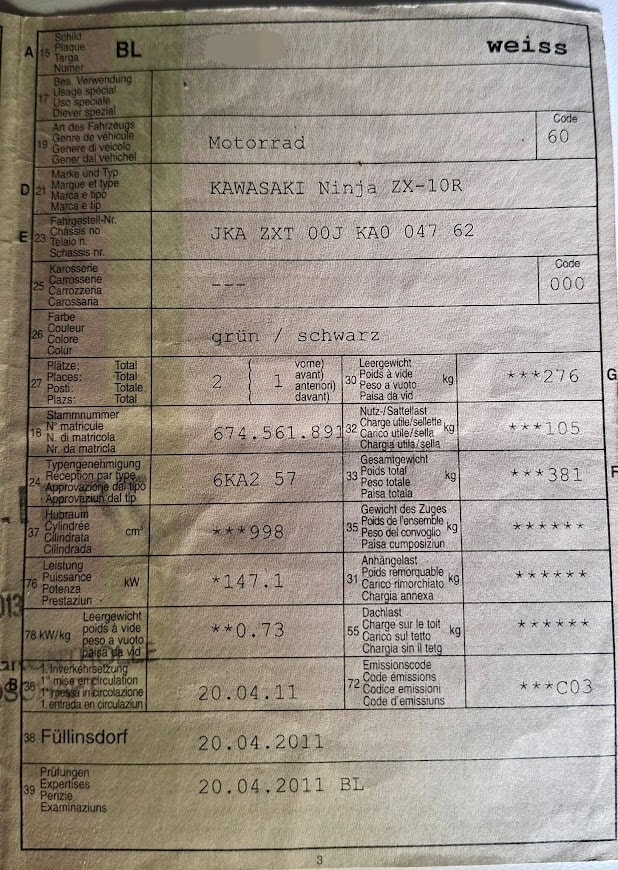 A 15 Schild
Plaque
Targa
Numer
BL weiss
17 Bes. Verwendung
Usage special
Uso speciale
Diever spezial
19 Art des Fahrzeugs
Genre de véhicule
Genere di veicolo
Gener dal vehichel
Motorrad
Code
60
D 21 Marke und Typ
Marque et type
Marca e tipo
Marca e tip
KAWASAKI Ninja ZX-10R
E 23 Fahrgestell-Nr.
Châssis no
Telaio n.
Schassis nr.
JKA ZXT 00J KA0 047 62
25 Karosserie
Carrosserie
Carrozzeria
Carossaria
---
Code
000
26 Farbe
Couleur
Colore
Colur
grün / schwarz
27 Plätze: Total
Places: Total
Posti: Totale
Plazs: Total
2 ( 1 vorne)
avant)
anteriori)
davant)
30 Leergewicht
Poids à vide
Peso a vuoto
Paisa da vid
kg
***276
G
18 Stammnummer
N° matricule
N. di matricola
Nr. da matricla
674.561.891
32 Nutz-/Sattellast
Charge utile/sellette
Carico utile/sella
Chargia utila/sella
kg
***105
24 Typengenehmigung
Réception par type
Approvazione dal tipo
Approvaziun dal tip
6KA2 57
33 Gesamtgewicht
Poids total
Peso totale
Paisa totala
kg
***381
F
37 Hubraum
Cylindrée
Cilindrata
Cilindrada
cm³
***998
35 Gewicht des Zuges
Poids de l'ensemble
Peso del convoglio
Paisa cumposiziun
kg
******
76 Leistung
Puissance
Potenza
Prestaziun
kW
*147.1
31 Anhängelast
Poids remorquable
Carico rimorchiato
Chargia annexa
kg
******
013
78 kW/kg Leergewicht
poids à vide
peso a vuoto
paisa da vid
**0.73
55 Dachlast
Charge sur le toit
Carico sul tetto
Chargia sin il tetg
kg
******
B 36 1. Inverkehrsetzung
1re mise en circulation
1a messa in circolazione
1. entrada en circulaziun
20.04.11
72 Emissionscode
Code émissions
Codice emissioni
Code d'emissiuns
***C03
38 Füllinsdorf 20.04.2011
39 Prüfungen
Expertises
Perizie
Examinaziuns
20.04.2011 BL
3